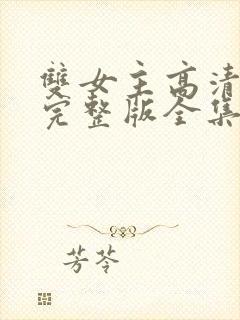 雙女主高清
完整版全集
芳苓